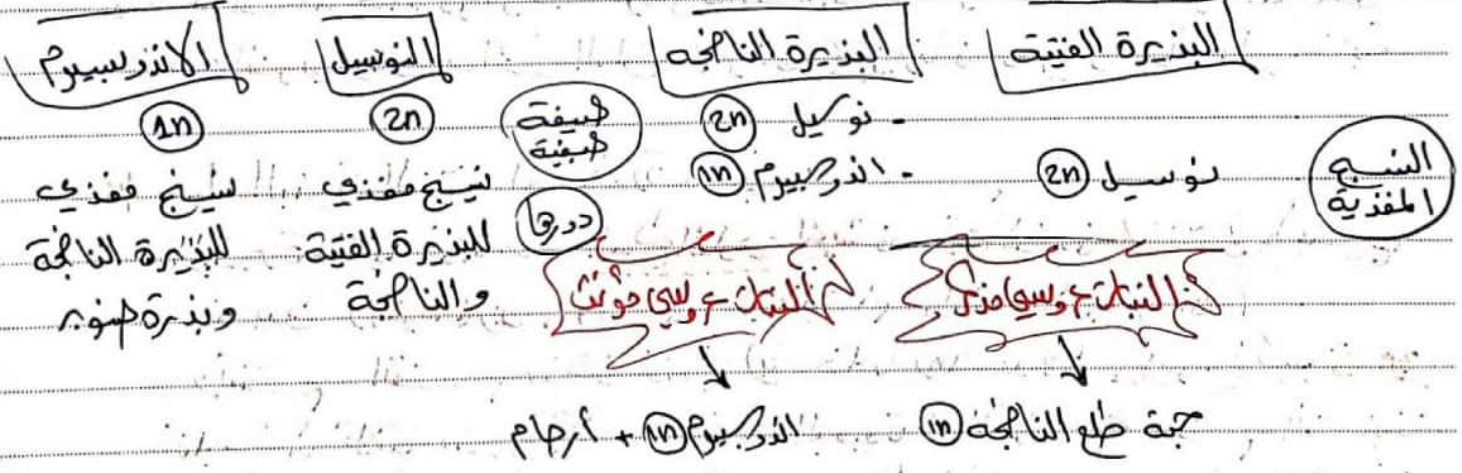 البذيرة الفتية البذيرة الناضجة النوسيل الاندوسبيوم
النسج المغذية نوسيل 2n
- نوسيل 2n
- اندوسبيوم 1n
صبغية
2n 1n
دورها
نسيج مغذي للبذيرة الفتية والناضجة
نسيج مغذي للبذيرة الناضجة وبذرة صنوبر
النبات عروسي مذكر النبات عروسي مؤنث
حبة طلع الناضجة 1n
اندوسبيوم 1n + أرحام